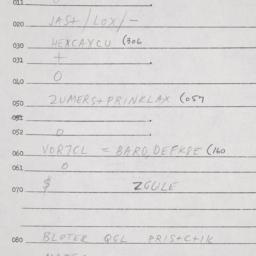 011
020 JAST/LOX/-
030 HEXCAYCU (306
031 +
040 0
050 ZUMERS+PRINKLAX (057
051
052 0
060 VOR7CL = BARQ,DEFKPE (160
061 0
070 $ ZGULE
080 BLOTER QGL PRIS+C+IK